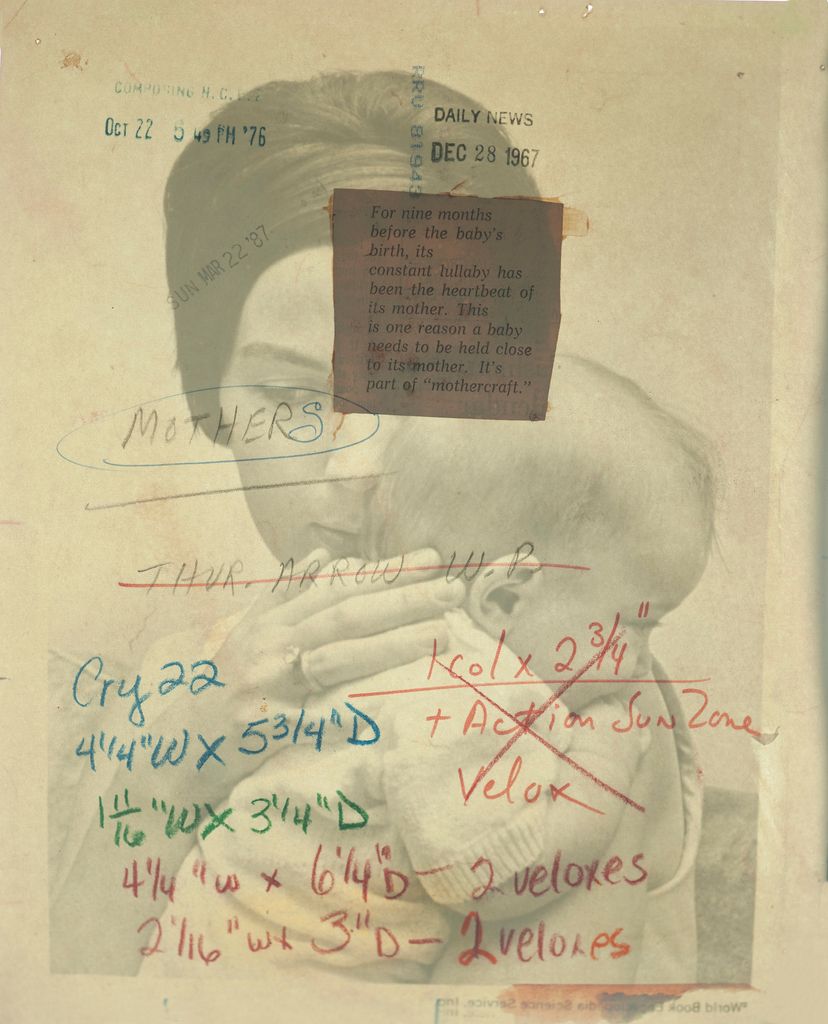 COMPOSING H.C.
OCT 22 5 49 PM '76
RRU 81943
DAILY NEWS
DEC 28 1967
SUN MAR 22 '87
For nine months
before the baby's
birth, its
constant lullaby has
been the heartbeat of
its mother. This
is one reason a baby
needs to be held close
to its mother. It's
part of "mothercraft."
MOTHERS
THUR. ARROW W.P
Cry 22
4 1/4" W x 5 3/4" D
1 11/16 "W x 3 1/4" D
1 col x 2 3/4"
+ Action Sun Zone
Velox
4 1/4 " w x 6 1/4" D — 2 veloxes
2 1/16" w x 3" D — 2 veloxes
World Book Encyclopedia Science Service, Inc.